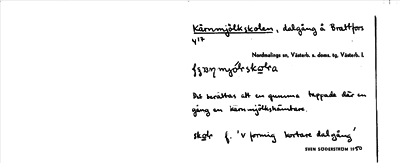 Kärnmjölkskolen, dalgång å Brattfors
417
Nordmalings sn, Västerb. s. doms. tg, Västerb. l.
Det berättas att en gumma tappade där en
gång en kärnmjölkskämbare.
skol f. 'v formig kortare dalgång'
SVEN SÖDERSTRÖM 1950